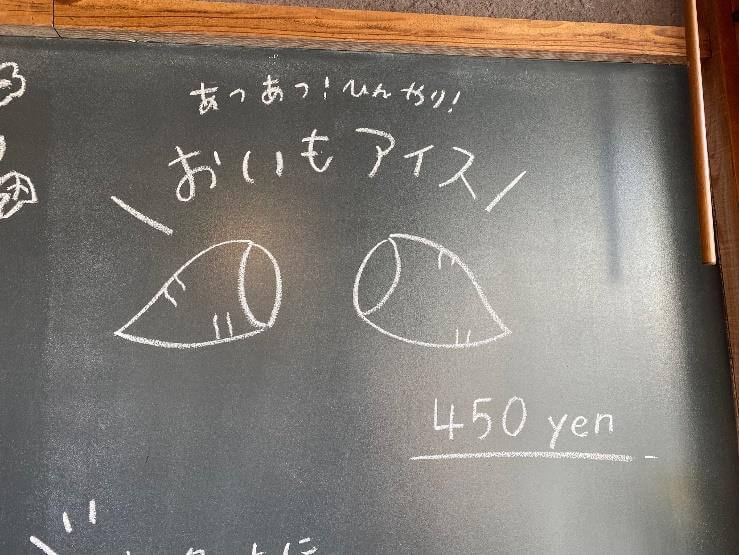 あつあつ!ひんやり!
おいもアイス
450 yen